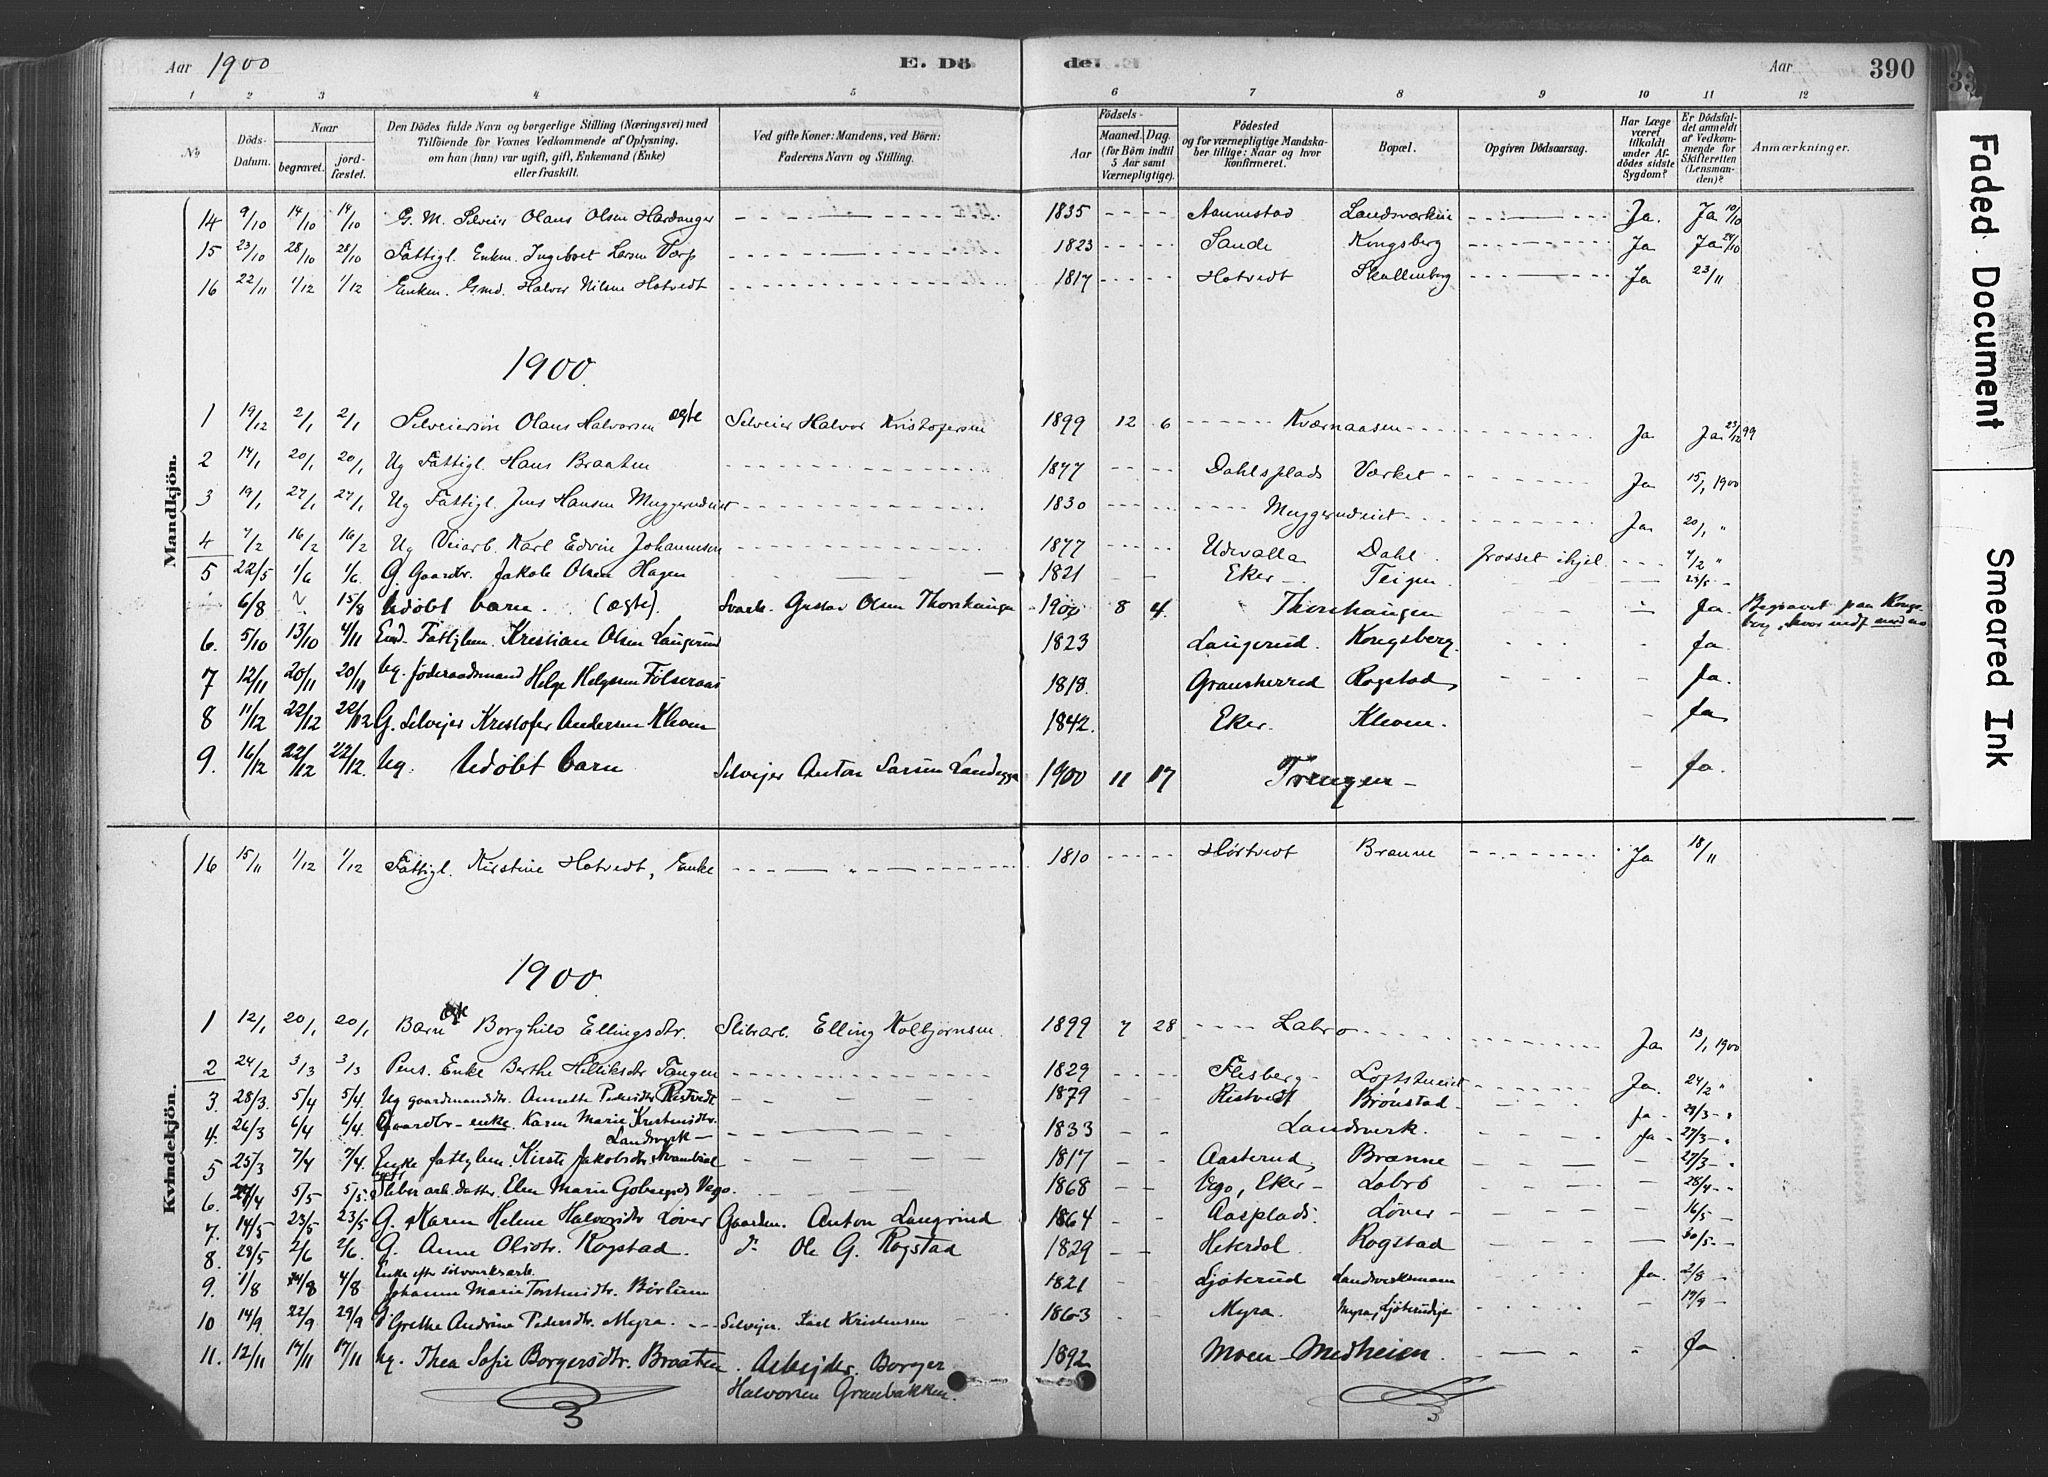 Aar 1900 E. Dö de! Aar 390
1 2 3 4 5 6 7 8 9 10 11 12
No Döds-Datum. Naar begravet. jord-fæstet. Den Dödes fulde Navn og borgerlige Stilling (Næringsvei) med Tilföiende for Voxnes Vedkommende af Oplysning, om han (hun) var ugift, gift, Enkemand (Enke) eller fraskilt. Ved gifte Koner: Mandens, ved Börn: Faderens Navn og Stilling. Födsels- Aar Maaned. Dag. (for Börn indtil 5 Aar samt Værnepligtige). Födested og for værnepligtige Mandska-ber tillige: Naar og hvor konfirmeret. Bopæl. Opgiven Dödsaarsag. Har Læge været tilkaldt under Af-dödes sidste Sygdom? Er Dödsfal-det anmeldt af Vedkom-mende for Skifteretten (Lensman-den)? Anmærkninger.
Mandkjön.
14 9/10 14/10 14/10 G. M. Selveier Olaus Olsen Hardanger 1835 Landsværkeie Ja. Ja 10/10
15 23/10 28/10 28/10 Fattigl. Enkm. Ingebret Larsen Torp 1823 Sande Kongsberg Ja Ja 24/10
16 22/11 1/12 1/12 Enkm. Gmd. Halvor Nilsen Hotvedt 1817 Hotvedt Skollenborg Ja 23/11
1900.
1 19/12 2/1 2/1 Selveiersøn Olaus Halvorsen ægte Selveier Halvor Kristofersen 1899 12 6 Kværnaasen Ja Ja 23/12 99
2 14/1 20/1 20/1 Ug Fattigl. Hans Braaten 1877 Dahlsplads Værket Ja 15/1 1900
3 19/1 27/1 27/1 Ug Fattigl. Jens Hansen Muggerudeiet 1830 Muggerudeiet Ja 20/1 "
4 7/2 16/2 16/2 Ug Veiarb. Karl Edvin Johannesen 1877 Udevalla Dahl. frosset ihjel 7/2 "
5 22/5 1/6 1/6. G. Gaardbr. Jakob Olsen Hagen 1821 Eker Teigen 23/5
6/8 15/8 Udøbt barn. (ægte). Svarb. Gustav Olsen Thorshaugen 1900 8 4. Thorshaugen Ja. Begravet paa Kongsberg, hvor indf.
6. 5/10 13/10 4/11 End. Fattiglem. Kristian Olsen Laugerud 1823 Laugerud. Kongsberg. Ja.
7 12/11 20/11 20/11 Ug. føderaadsmand Helge Helgesen Følseraas 1818. Gransherred Rogstad, Ja.
8 11/12 22/12 22/12 G. Selvejer Kristofer Andersen Kleven 1842. Eker. Kleven. Ja
9. 16/12 22/12 22/12. Ug. Udøbt barn Selvejer Anton Larsen 1900 11 17 Trengen Ja.
Kvindekjön.
16 15/11 1/12 1/12 Fattigl. Kirstine Hotvedt, Enke 1810 Hørtvedt Brænne Ja 18/11
1900.
1 12/1 20/1 20/1 Barn ægte Borghild Ellingsdtr. Slibearb. Elling Kolbjørnsen. 1899 7 28 Labro Ja 13/1 1900
2 24/2 3/3 3/3 Pens. Enke Berthe Helliksdtr Tangen 1829 Flesberg Loftstueiet Ja. 24/2 "
3. 28/3. 5/4 5/4. Ug gaardmandsdtr. Annette Pedersdtr Ristvedt 1879 Ristvedt Brønstad ja 29/3 "
4. 26/3 6/4 6/4. Gaardbr-enke. Karen Marie Kristensdtr. Landsverk 1833 Landsverk. ja 27/3 "
5 25/3 7/4 7/4. Enke fattiglem. Kirsti Jakobsdtr 1817 Aasterud, Brænne 27/3 "
6. 27/4 5/5 5/5. Sliberarb.datter. Elen Marie Vego. 1868 Vego, Eker Labro 28/4
7. 14/5 23/5 23/5 G. Karen Helene Halvorsdtr Løver Gaardm. Anton Laugerud 1864 Aasplads. Løver 16/5
8. 29/5 2/6 2/6. G. Anne Olsdtr. Rogstad. dr. Ole G. Rogstad 1829 Heterdal. Rogstad 30/5
9. 1/8 4/8 4/8 Enke efter sølvverksarb. Johanne Marie Torstensdtr. 1821 Ljøterud Landsverksmoen Ja. 2/8
10 14/9. 22/9 29/9 G Grethe Andrine Pedersdtr. Myra. Selvejer. Karl Kristensen 1863 Myra. Myra, Ljøterudeje 17/9
11. 12/11 17/11 17/11 Ug. Thea Sofie Borgersdtr. Braaten. Arbejder. Borger Halvorsen Granbakken. 1892 Moen-Medheien. Ja
Faded Document
Smeared Ink